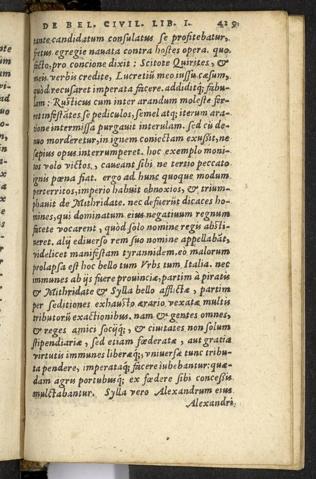 DE BEL. CIVIL. LIB. I. 419.
tante candidatum consulatus se profitebatur,
fretus egregie nauata contra hostes opera. quo
facto, pro concione dixit: Scitote Quirites, &
meis verbis credite, Lucretiũ meo iussu cæsum,
quòd recusaret imperata facere. addiditq; fabu-
lam: Rusticus cum inter arandum moleste fer-
ret infestãtes se pediculos, semel atq; iterum ara-
tione intermissa purgauit interulam. sed cũ de-
nuo morderetur, in ignem coniectam exußit, ne
sepius opus interrumperet. hoc exemplo moni-
tos volo victos, caueant sibi ne tertio peccato
ignis pœna fiat. ergo ad hunc quoque modum
perterritos, imperio habuit obnoxios, & trium-
phauit de Mithridate. nec defuerũt dicaces ho-
mines, qui dominatum eius negatiuum regnum
facete vocarent, quòd solo nomine regis absti-
neret. alij ediuerso rem suo nomine appellabãt,
videlicet manifestam tyrannidem. eo malorum
prolapsa est hoc bello tum Vrbs tum Italia. nec
immunes ab ijs fuere prouinciæ, partim à piratis
& Mithridate & Sylla bello afflictæ, partim
per seditiones exhausto ærario vexatæ multis
tributorũ exactionibus. nam & gentes omnes,
& reges amici socijq;, & ciuitates non solum
stipendiariæ, sed etiam fœderatæ, aut gratia
virtutis immunes liberæq;, vniuersæ tunc tribu-
ta pendere, imperataq; facere iubebantur: quæ-
dam agris portubusq; ex fœdere sibi concessis
mulctabantur. Sylla vero Alexandrum eius
Alexandri,